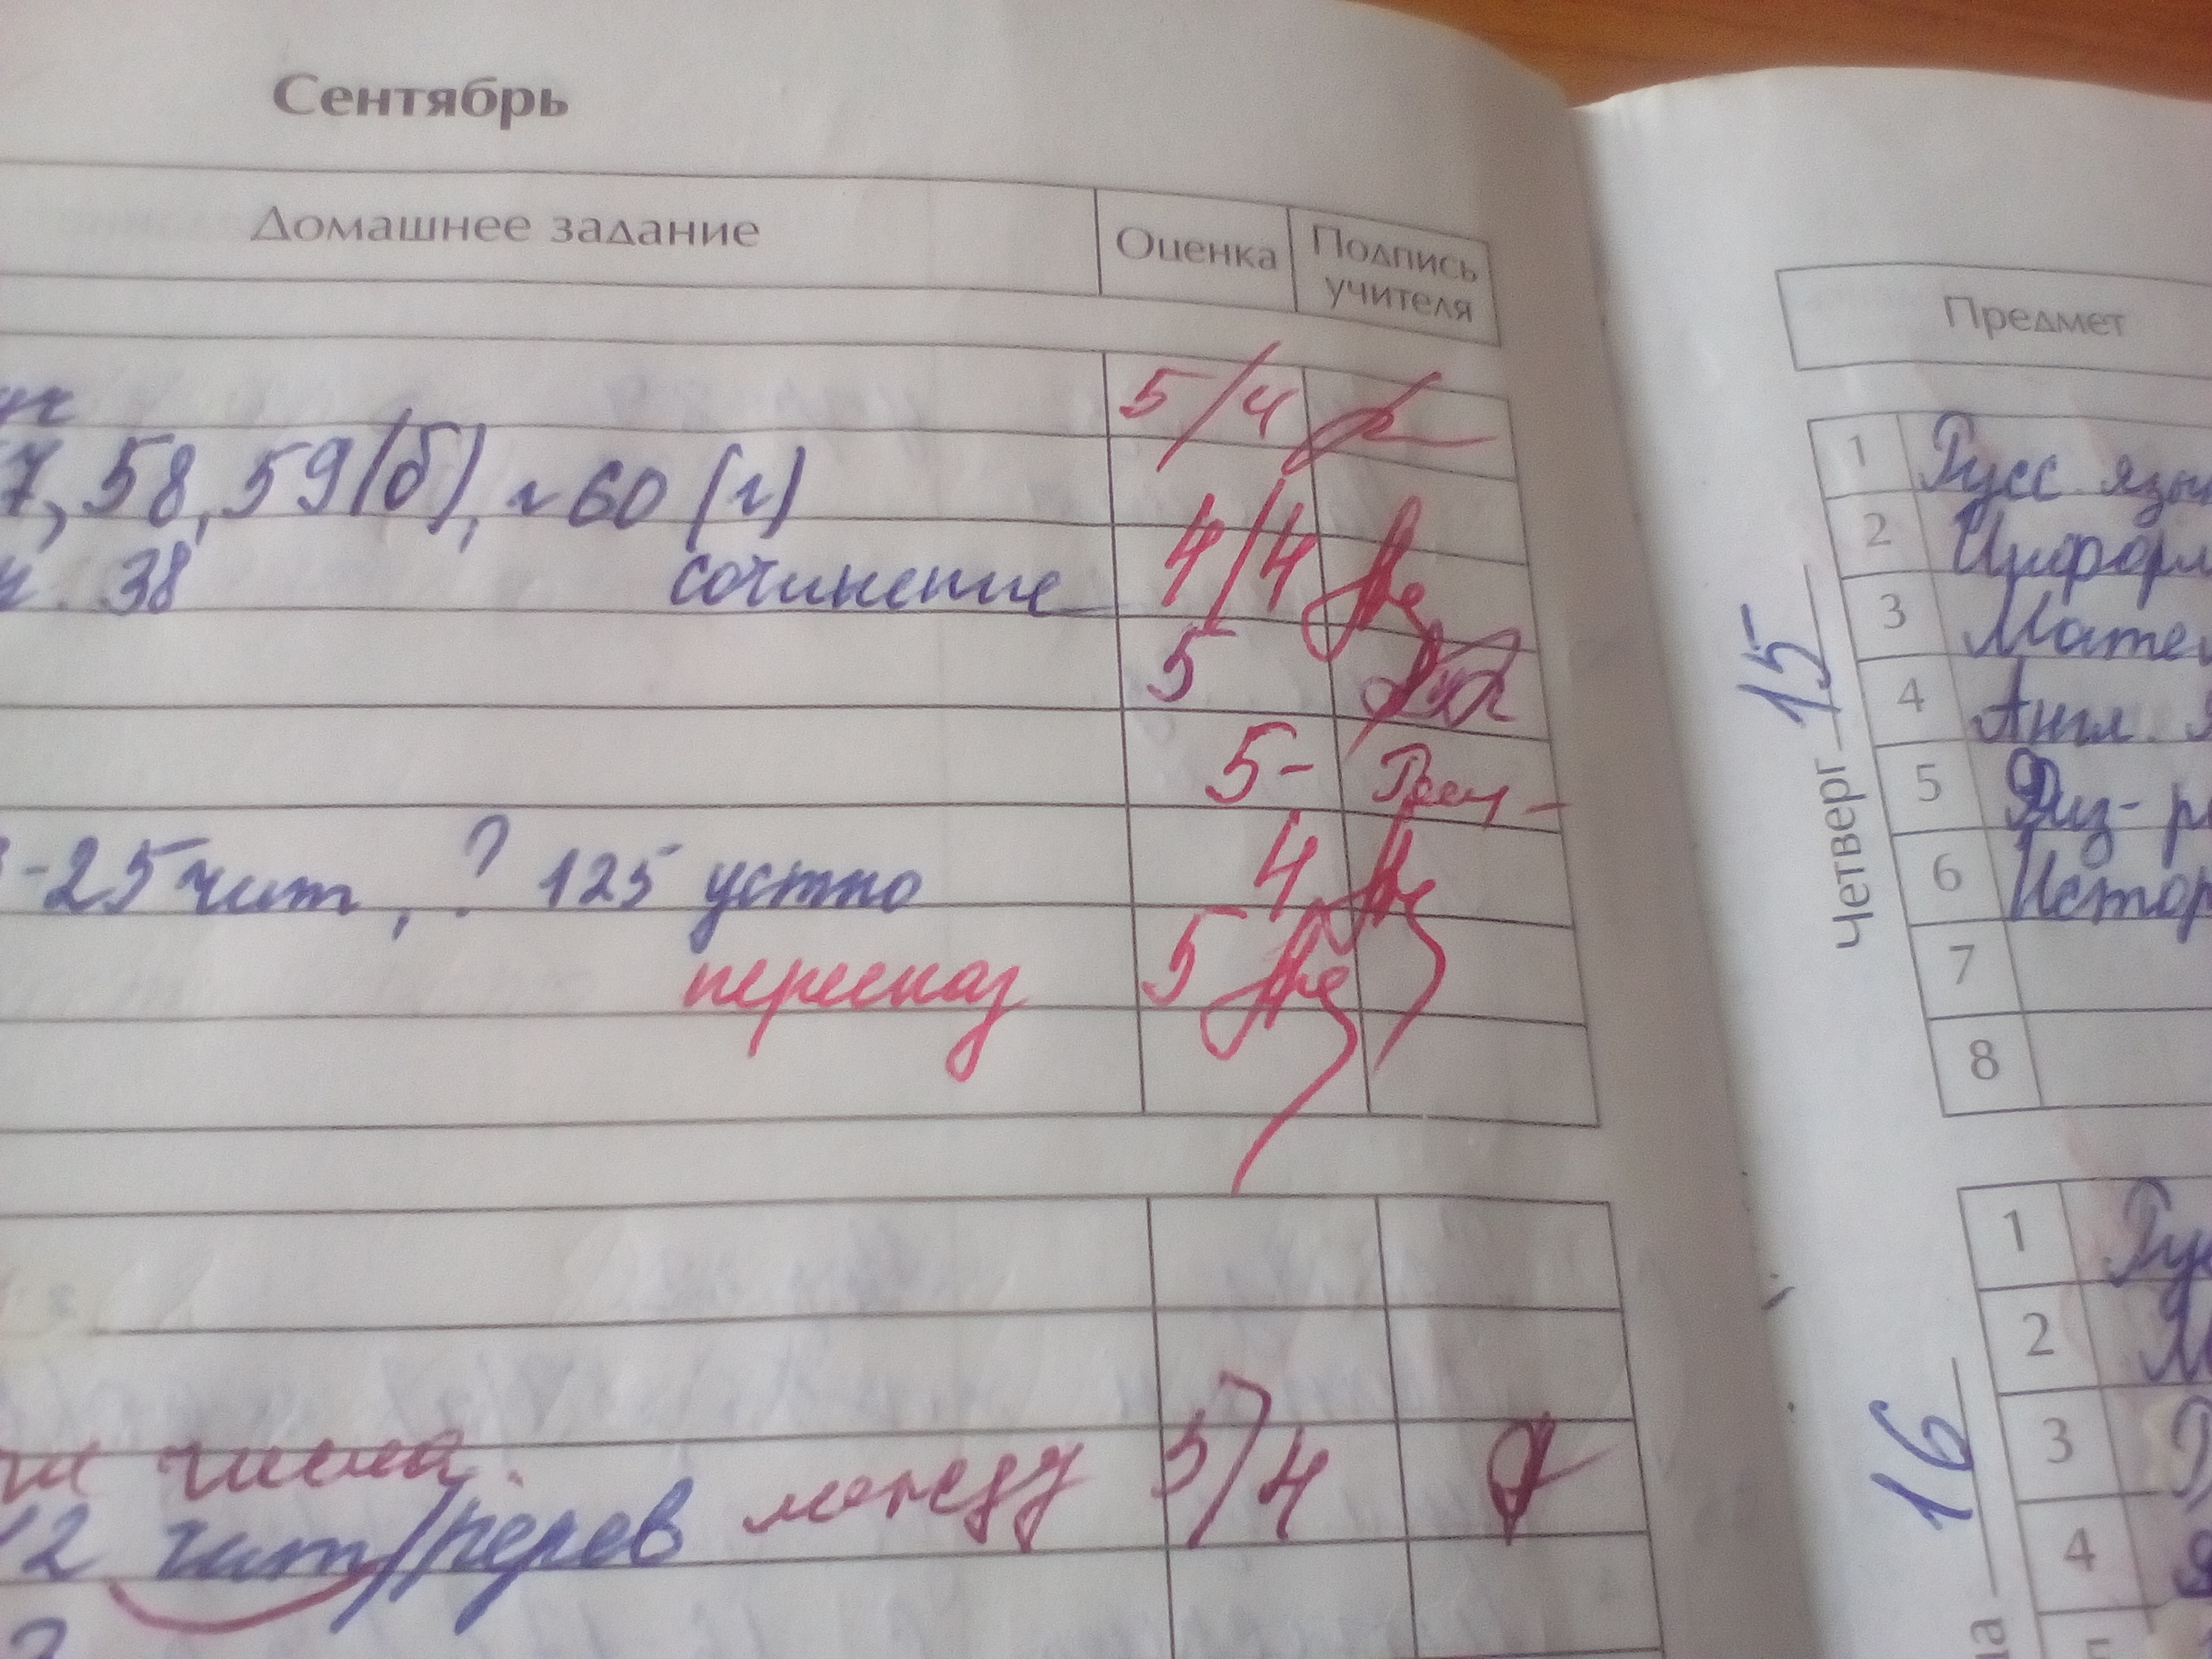 Сентябрь
Домашнее задание
Оценка
Подпись
учителя
5/4
7, 58, 59(б), № 60 (г)
38 сочинение 4/4
5
5-
-25 чит, ? 125 устно 4
пересказ 5
числа
12 чит/перев между 5/4
Предмет
Четверг 15
1 Русс. язы
2 Информ
3 Матем
4 Англ. я
5 Физ-р
6 Истор
7
8
16
1 Рус
2 М
3
4